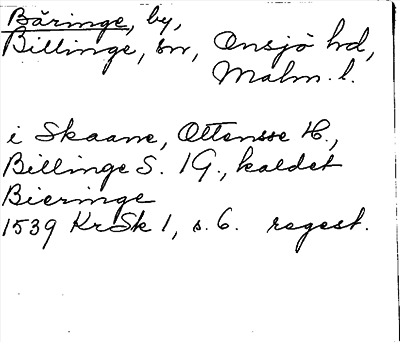 Bäringe, by,
Billinge, sn, Onsjö hd,
Malm. l.
i Skaane, Ottensse H.,
Billinge S. 1 G., kaldet
Bieringe
1539 KrSk 1, s. 6. regest.